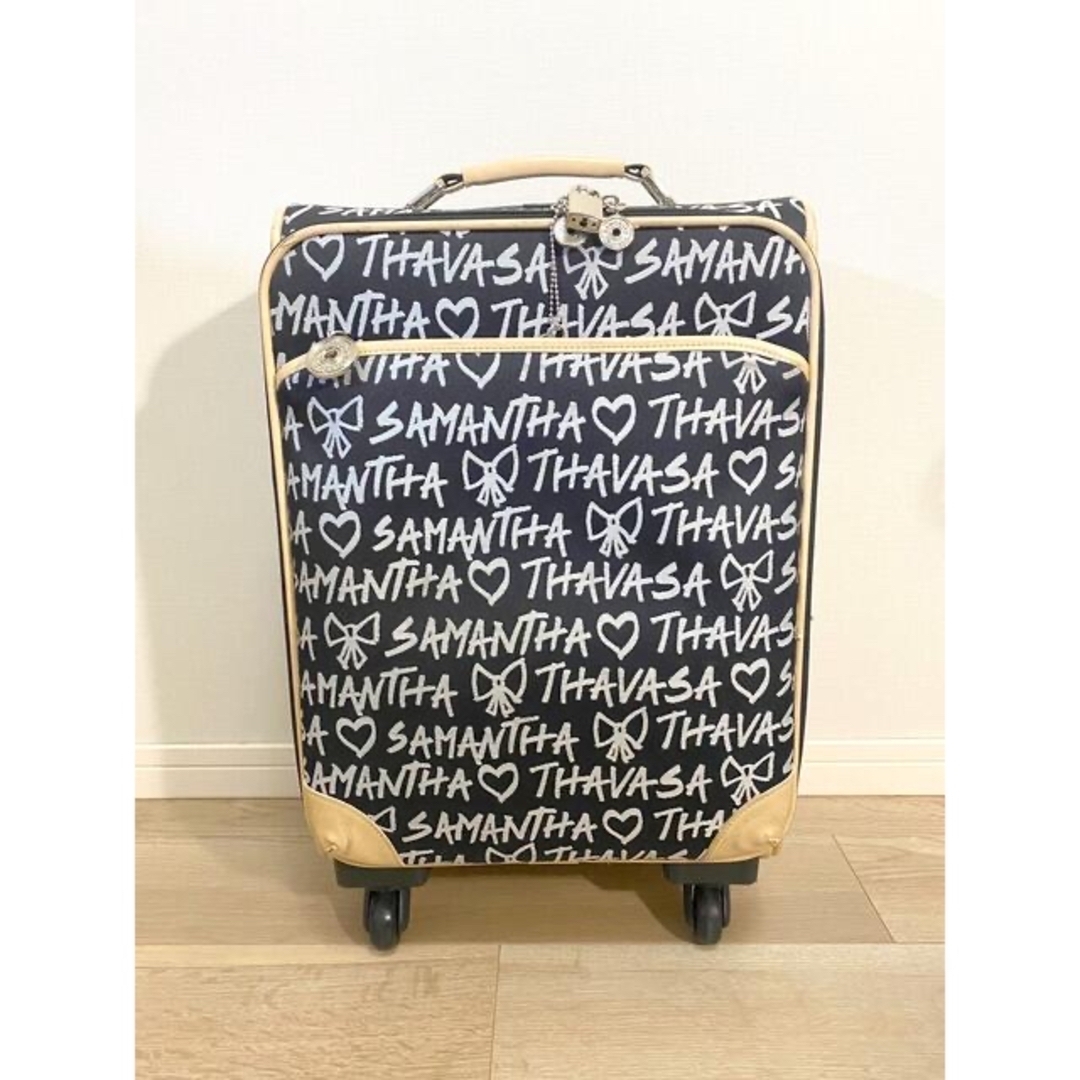 SAMANTHA THAVASA
A♡THAVASA SAMANTH
MANTHA♡THAVASA SA
AMANTHA♡THAVASA S
A SAMANTHA♡THAVAS
AMANTHA THAVASA♡S
SA♡SAMANTHA THAVAS
SAMANTHA♡THAVASA S
A SAMANTHA♡THAVAS
AMANTHA THAVASA♡S
SA♡SAMANTHA THAVAS
SAMANTHA♡THAVASA S
SAMANTHA♡THA
SAMANTHA THAVASA